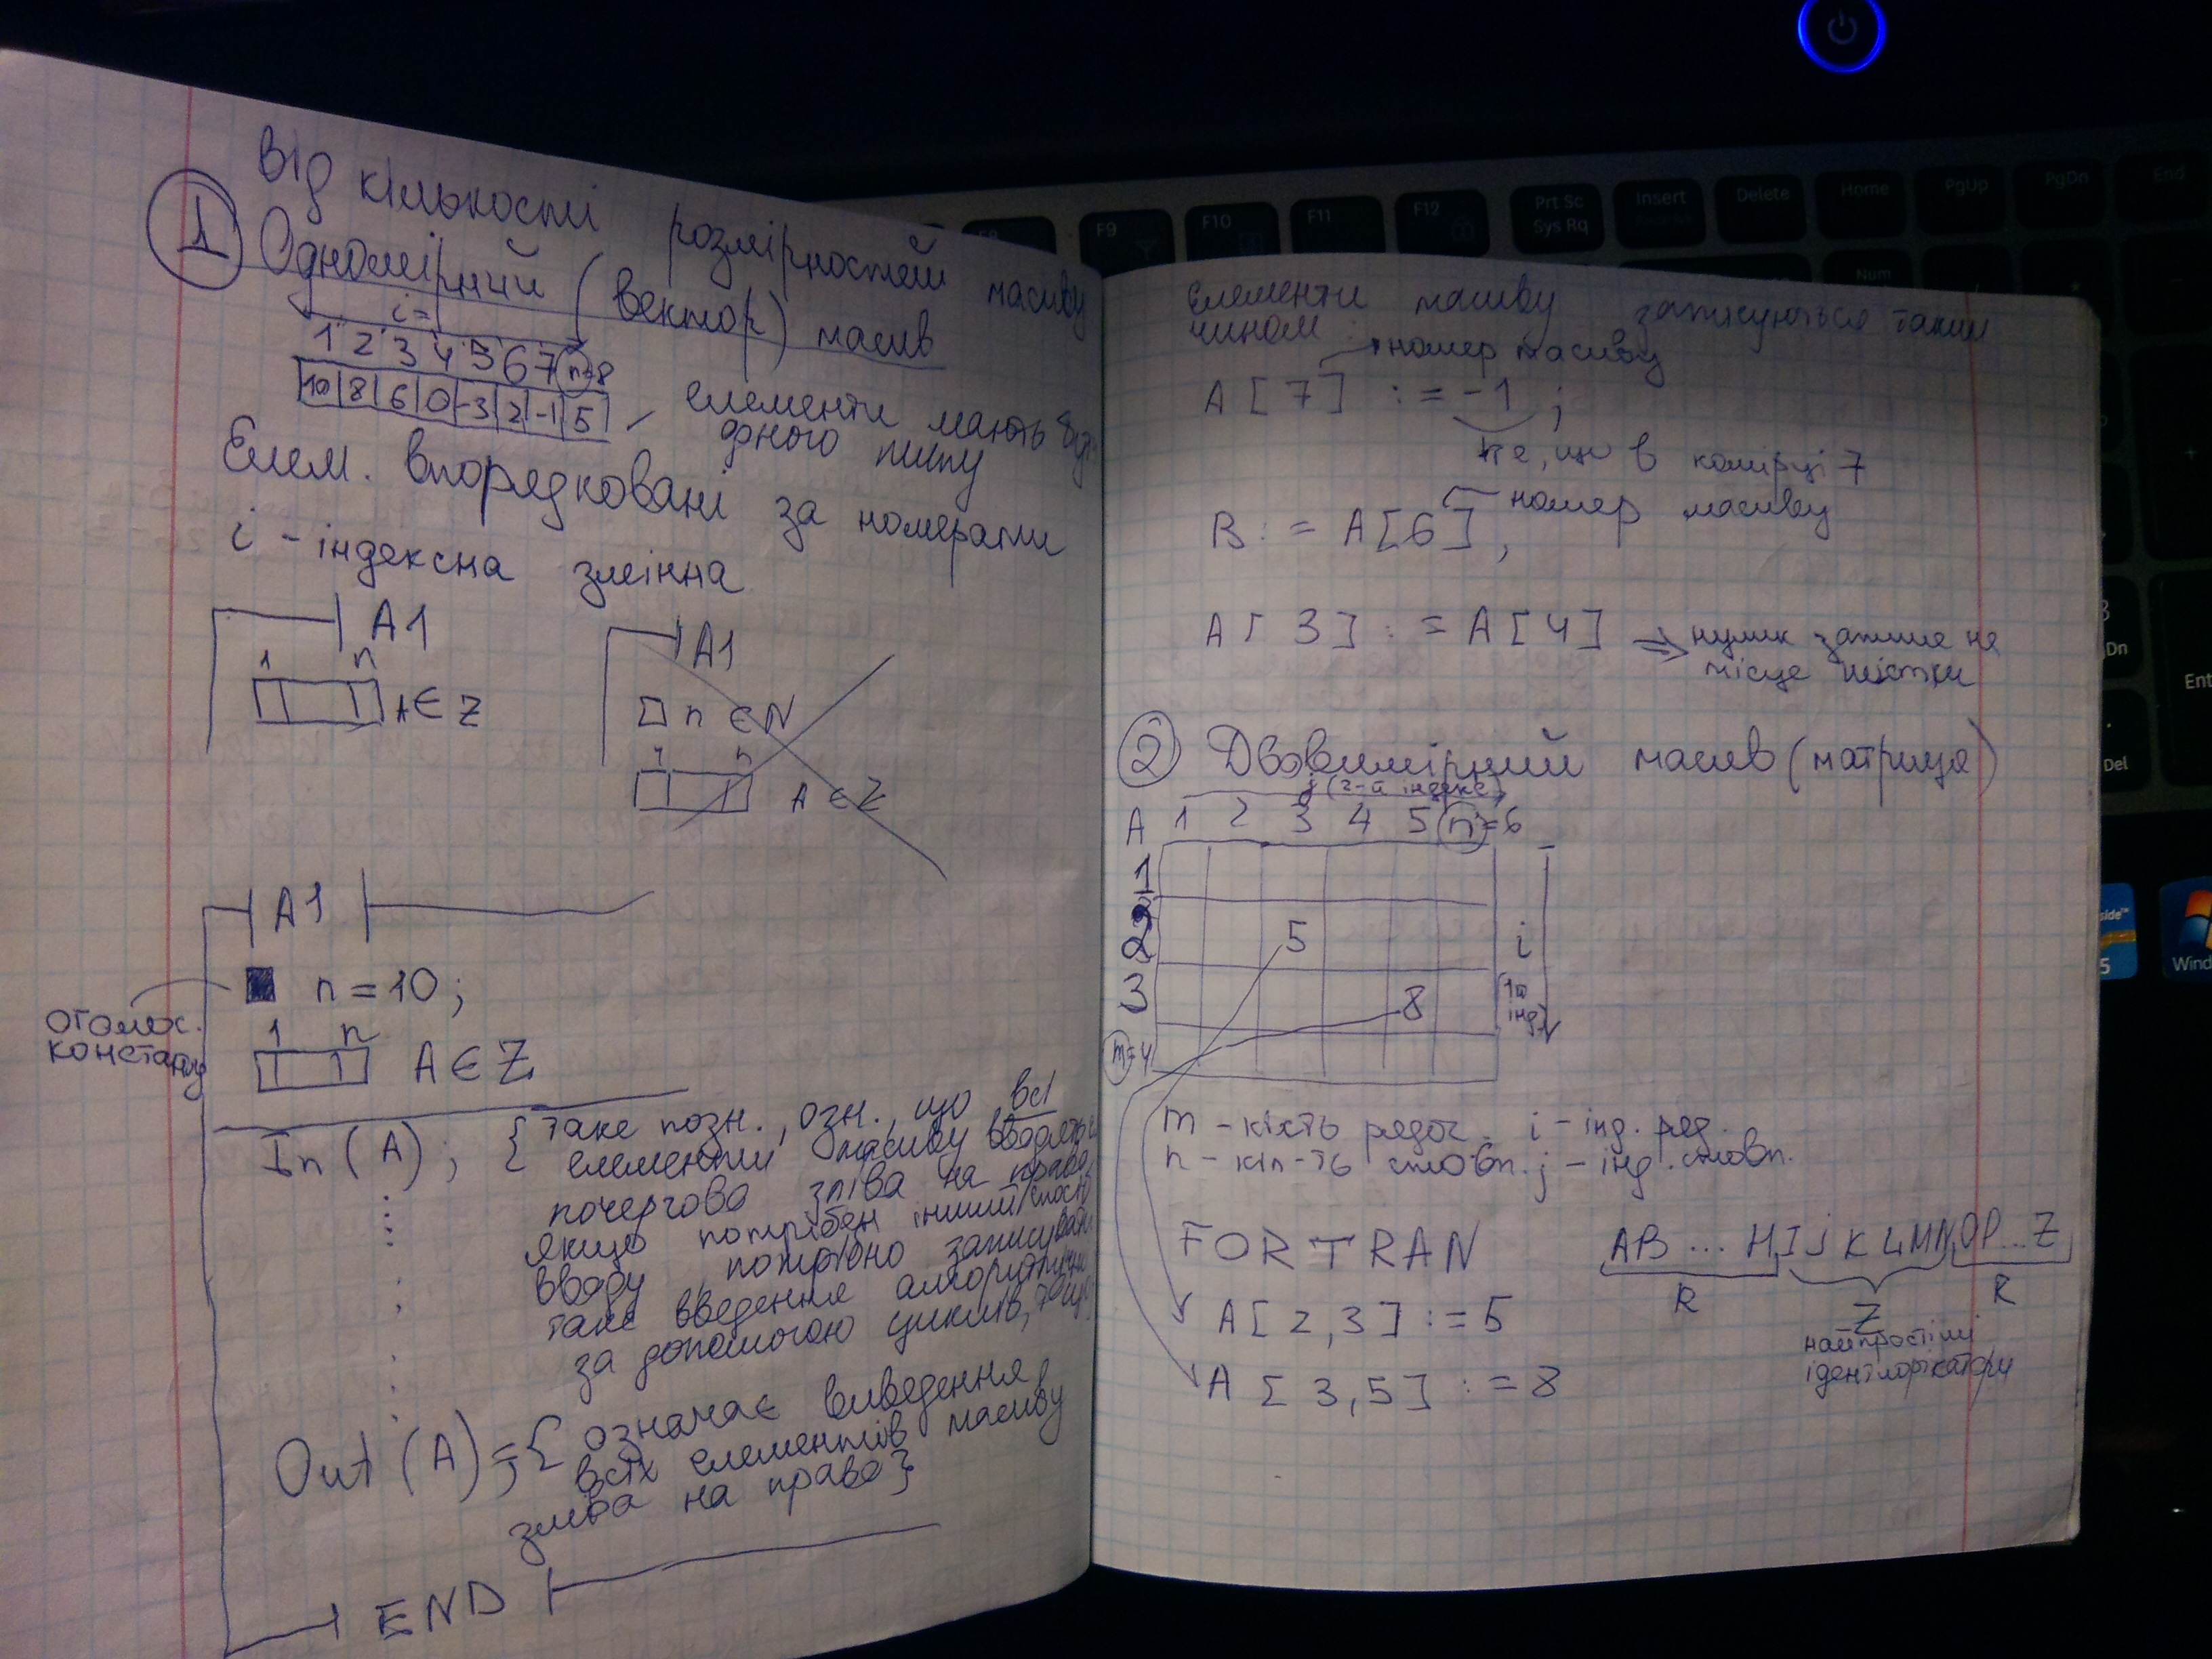 від кількості розмірностей масиву
1 Одномірний (вектор) масив
i =
1 2 3 4 5 6 7 n=8
10 8 6 0 -3 2 -1 5
елементи мають бути
одного типу
Елем. впорядковані за номерами
i - індексна змінна
A1
1 n
A ∈ Z
A1
n ∈ N
1 n
A ∈ Z
A1
n = 10 ;
оголос.
константу
1 n
A ∈ Z
In (A) ; { таке позн., озн., що всі
елементи масиву вводяться
почергово зліва на право
якщо потрібен інший спосіб
вводу, потрібно записувати
таке введення алгоритмічно
за допомогою циклів, тощо
Out (A) ; { означає виведення
всіх елементів масиву
зліва на право }
END
Елементи масиву записуються таким
чином:
номер масиву
A [ 7 ] := -1 ;
те, що в комірці 7
номер масиву
B := A[6] ;
A [ 3 ] := A [ 4 ] ⇒ нулик запише на
місце шістки
2 Двовимірний масив (матриця)
j (2-й індекс)
A 1 2 3 4 5 n=6
1
2 5 i
3 8 1й
інд.
m=4
m - кість рядоч. i - інд. ряд.
n - кіл-ть стовп. j - інд. стовп.
FORTRAN
AB ... H I J K L M N O P ... Z
R Z R
найпростіші
ідентифікатори
A [ 2, 3 ] := 5
A [ 3, 5 ] := 8
F9
F10
F11
F12
Prt Sc
Sys Rq
Insert
Delete
Home
PgUp
PgDn
End
Num
Dn
Del
Ent
side™
5
Wind